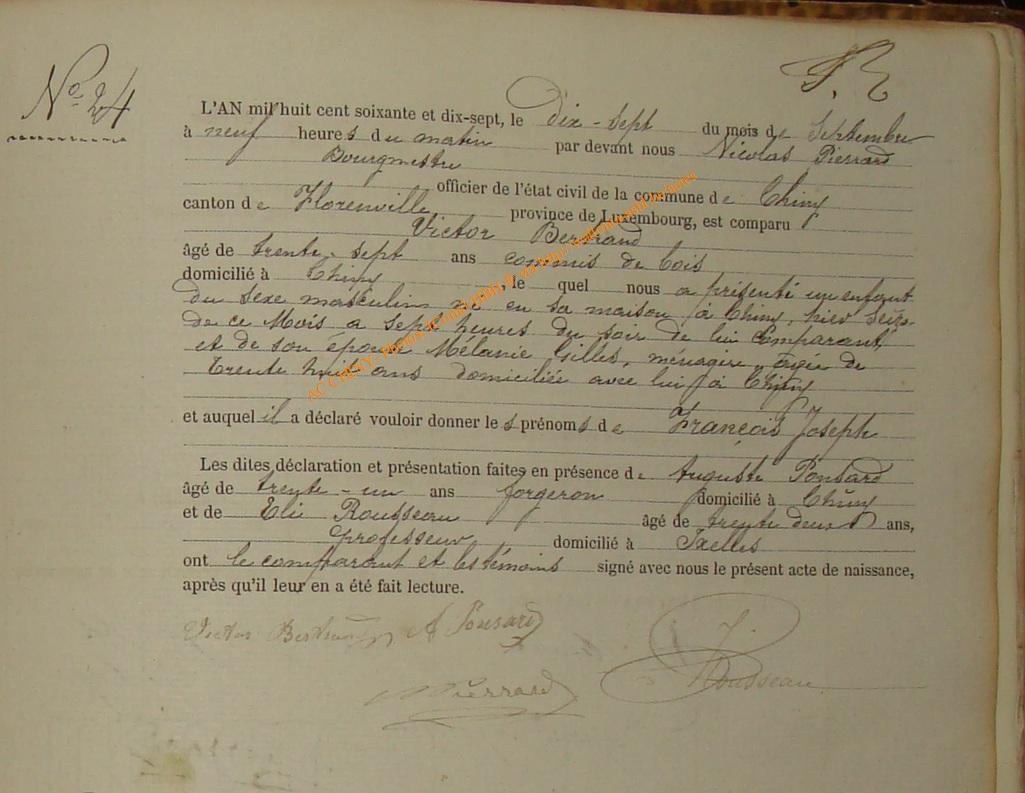 No 24
L'AN mil huit cent soixante et dix-sept, le dix-sept du mois de Septembre
à neuf heures du matin par devant nous Nicolas Pierrard
Bourgmestre
officier de l'état civil de la commune de Chiny
canton de Florenville province de Luxembourg, est comparu
Victor Bertrand
âgé de trente-sept ans commis de bois
domicilié à Chiny, le quel nous a présenté un enfant
du sexe masculin né en sa maison à Chiny, hier seize
de ce Mois a sept heures du soir de lui Comparant,
et de son épouse Mélanie Gilles, ménagère, agée de
trente huit ans domiciliée avec lui à Chiny
et auquel il a déclaré vouloir donner les prénoms de François Joseph
Les dites déclaration et présentation faites en présence de Auguste Ponsard
âgé de trente-un ans forgeron domicilié à Chiny
et de Elie Rousseau âgé de trente deux ans,
professeur domicilié à Ixelles
ont le comparant et les témoins signé avec nous le présent acte de naissance,
après qu'il leur en a été fait lecture.
Victor Bertrand A Ponsard
Rousseau
Pierrard